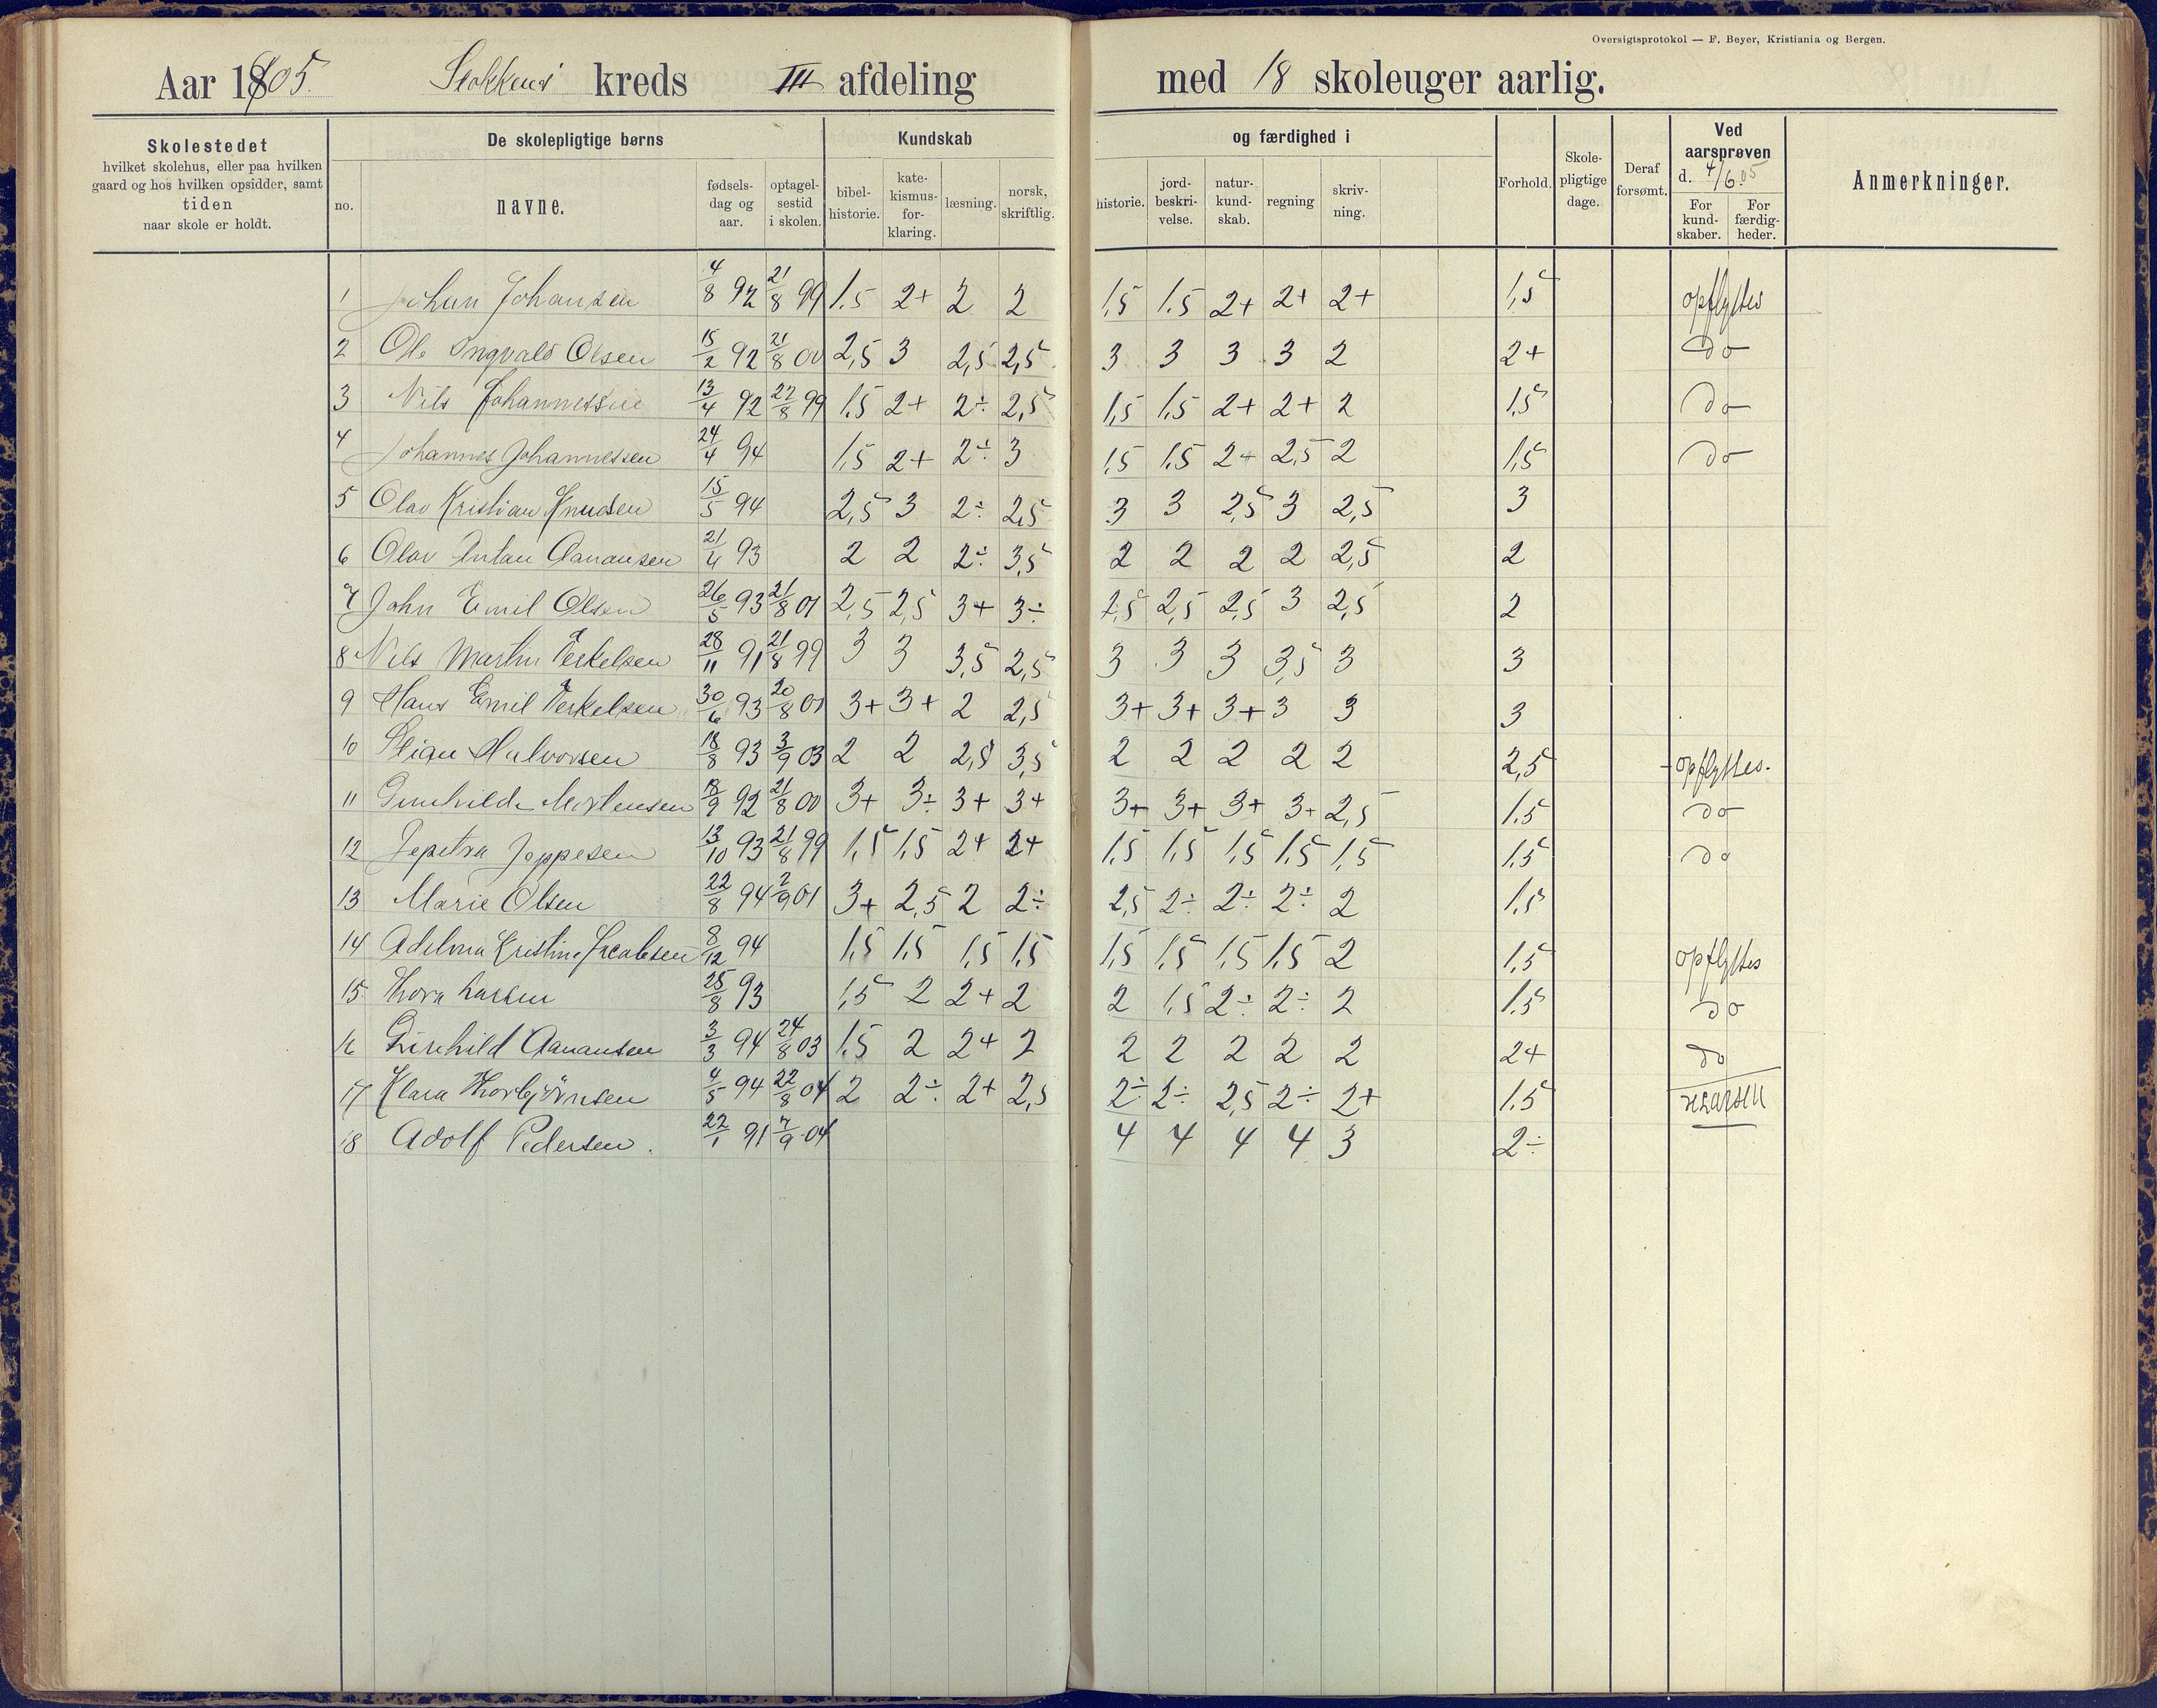 Oversigtsprotokol — F. Beyer, Kristiania og Bergen.
Aar 1905. Stokkens kreds III afdeling med 18 skoleuger aarlig.
Skolestedet
hvilket skolehus, eller paa hvilken
gaard og hos hvilken opsidder, samt
tiden
naar skole er holdt.
De skolepligtige børns
no.
navne.
fødsels-
dag og
aar.
optagel-
sestid
i skolen.
Kundskab
bibel-
historie.
kate-
kismus-
for-
klaring.
læsning.
norsk,
skriftlig.
og færdighed i
historie.
jord-
beskri-
velse.
natur-
kund-
skab.
regning
skriv-
ning.
Forhold.
Skole-
pligtige
dage.
Deraf
forsømt.
Ved
aarsprøven
d. 4/6.05
For
kund-
skaber.
For
færdig-
heder.
Anmerkninger.
1 Johan Johansen 4/8 92 21/8 99 1,5 2+ 2 2 1,5 1,5 2+ 2+ 2+ 1,5 opflyttes
2 Ole Ingvald Olsen 15/2 92 21/8 00 2,5 3 2,5 2,5 3 3 3 3 2 2+ do
3 Nils Johannessen 13/4 92 22/8 99 1,5 2+ 2÷ 2,5 1,5 1,5 2+ 2+ 2 1,5 do
4 Johannes Johannessen 24/4 94 1,5 2+ 2÷ 3 1,5 1,5 2+ 2,5 2 1,5 do
5 Olav Kristian Knudsen 15/5 94 2,5 3 2÷ 2,5 3 3 2,5 3 2,5 3
6 Olav Antan Aanansen 21/4 93 2 2 2÷ 3,5 2 2 2 2 2,5 2
7 John Emil Olsen 26/5 93 21/8 01 2,5 2,5 3+ 3÷ 2,5 2,5 2,5 3 2,5 2
8 Nils Martin Terkelsen 28/11 91 21/8 99 3 3 3,5 2,5 3 3 3 3,5 3 3
9 Hans Emil Terkelsen 30/6 93 20/8 01 3+ 3+ 2 2,5 3+ 3+ 3+ 3 3 3
10 Stian Halvorsen 18/8 93 3/9 03 2 2 2,5 3,5 2 2 2 2 2 2,5 opflyttes.
11 Gunhilda Mortensen 18/9 92 21/8 00 3+ 3÷ 3+ 3+ 3+ 3+ 3+ 3+ 2,5 1,5 do
12 Jepetra Jeppesen 13/10 93 21/8 99 1,5 1,5 2+ 2+ 1,5 1,5 1,5 1,5 1,5 1,5 do
13 Marie Olsen 22/8 94 2/9 01 3+ 2,5 2 2÷ 2,5 2÷ 2÷ 2÷ 2 1,5
14 Adelma Kristine Jacobsen 8/12 94 1,5 1,5 1,5 1,5 1,5 1,5 1,5 1,5 2 1,5 opflyttes
15 Thora Larsen 25/8 93 1,5 2 2+ 2 2 1,5 2÷ 2÷ 2 1,5 do
16 Ginhild Aanansen 3/3 94 24/8 03 1,5 2 2+ 2 2 2 2 2 2 2+ do
17 Klara Thorbjörnsen 4/5 94 22/8 04 2 2÷ 2+ 2,5 2÷ 2÷ 2,5 2÷ 2+ 1,5
18 Adolf Pedersen. 22/1 91 7/9 04 4 4 4 4 3 2÷